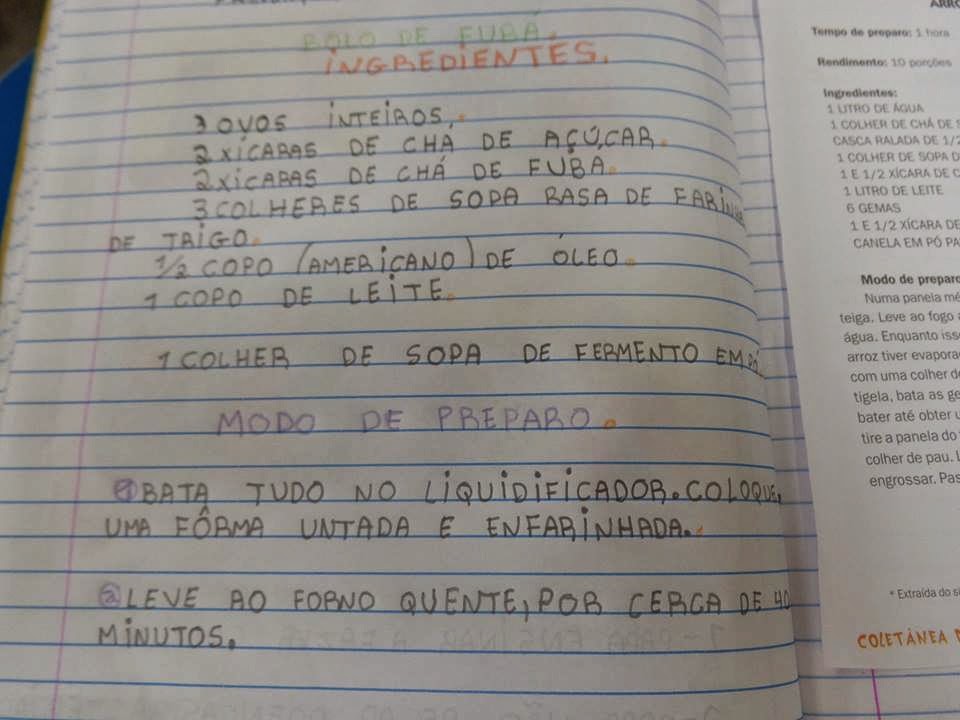 BOLO DE FUBÁ.
INGREDIENTES.
3 OVOS INTEIROS.
2 XÍCARAS DE CHÁ DE AÇÚCAR.
2 XÍCARAS DE CHÁ DE FUBA.
3 COLHERES DE SOPA RASA DE FARINHA
DE TRIGO.
1/2 COPO (AMERICANO) DE ÓLEO.
1 COPO DE LEITE.
1 COLHER DE SOPA DE FERMENTO EM PÓ
MODO DE PREPARO.
1 BATA TUDO NO LIQUIDIFICADOR. COLOQUE,
UMA FÔRMA UNTADA E ENFARINHADA.
2 LEVE AO FORNO QUENTE, POR CERCA DE 40
MINUTOS.
ARRO
Tempo de preparo: 1 hora
Rendimento: 10 porções
Ingredientes:
1 LITRO DE ÁGUA
1 COLHER DE CHÁ DE
CASCA RALADA DE 1/2
1 COLHER DE SOPA D
1 E 1/2 XÍCARA DE C
1 LITRO DE LEITE
6 GEMAS
1 E 1/2 XÍCARA DE
CANELA EM PÓ PA
Modo de prepar
Numa panela mé
teiga. Leve ao fogo
água. Enquanto iss
arroz tiver evapora
com uma colher d
tigela, bata as ge
bater até obter
tire a panela do
colher de pau.
engrossar. Pas
* Extraída do s
COLETÂNEA